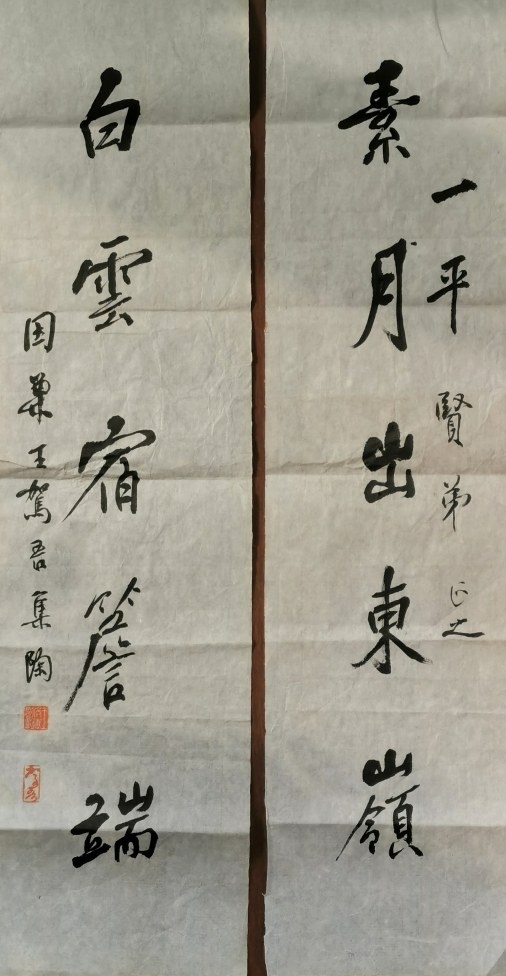 一平賢弟正之
素月出東嶺
白雲宿簷端
因巢王駕吾集陶